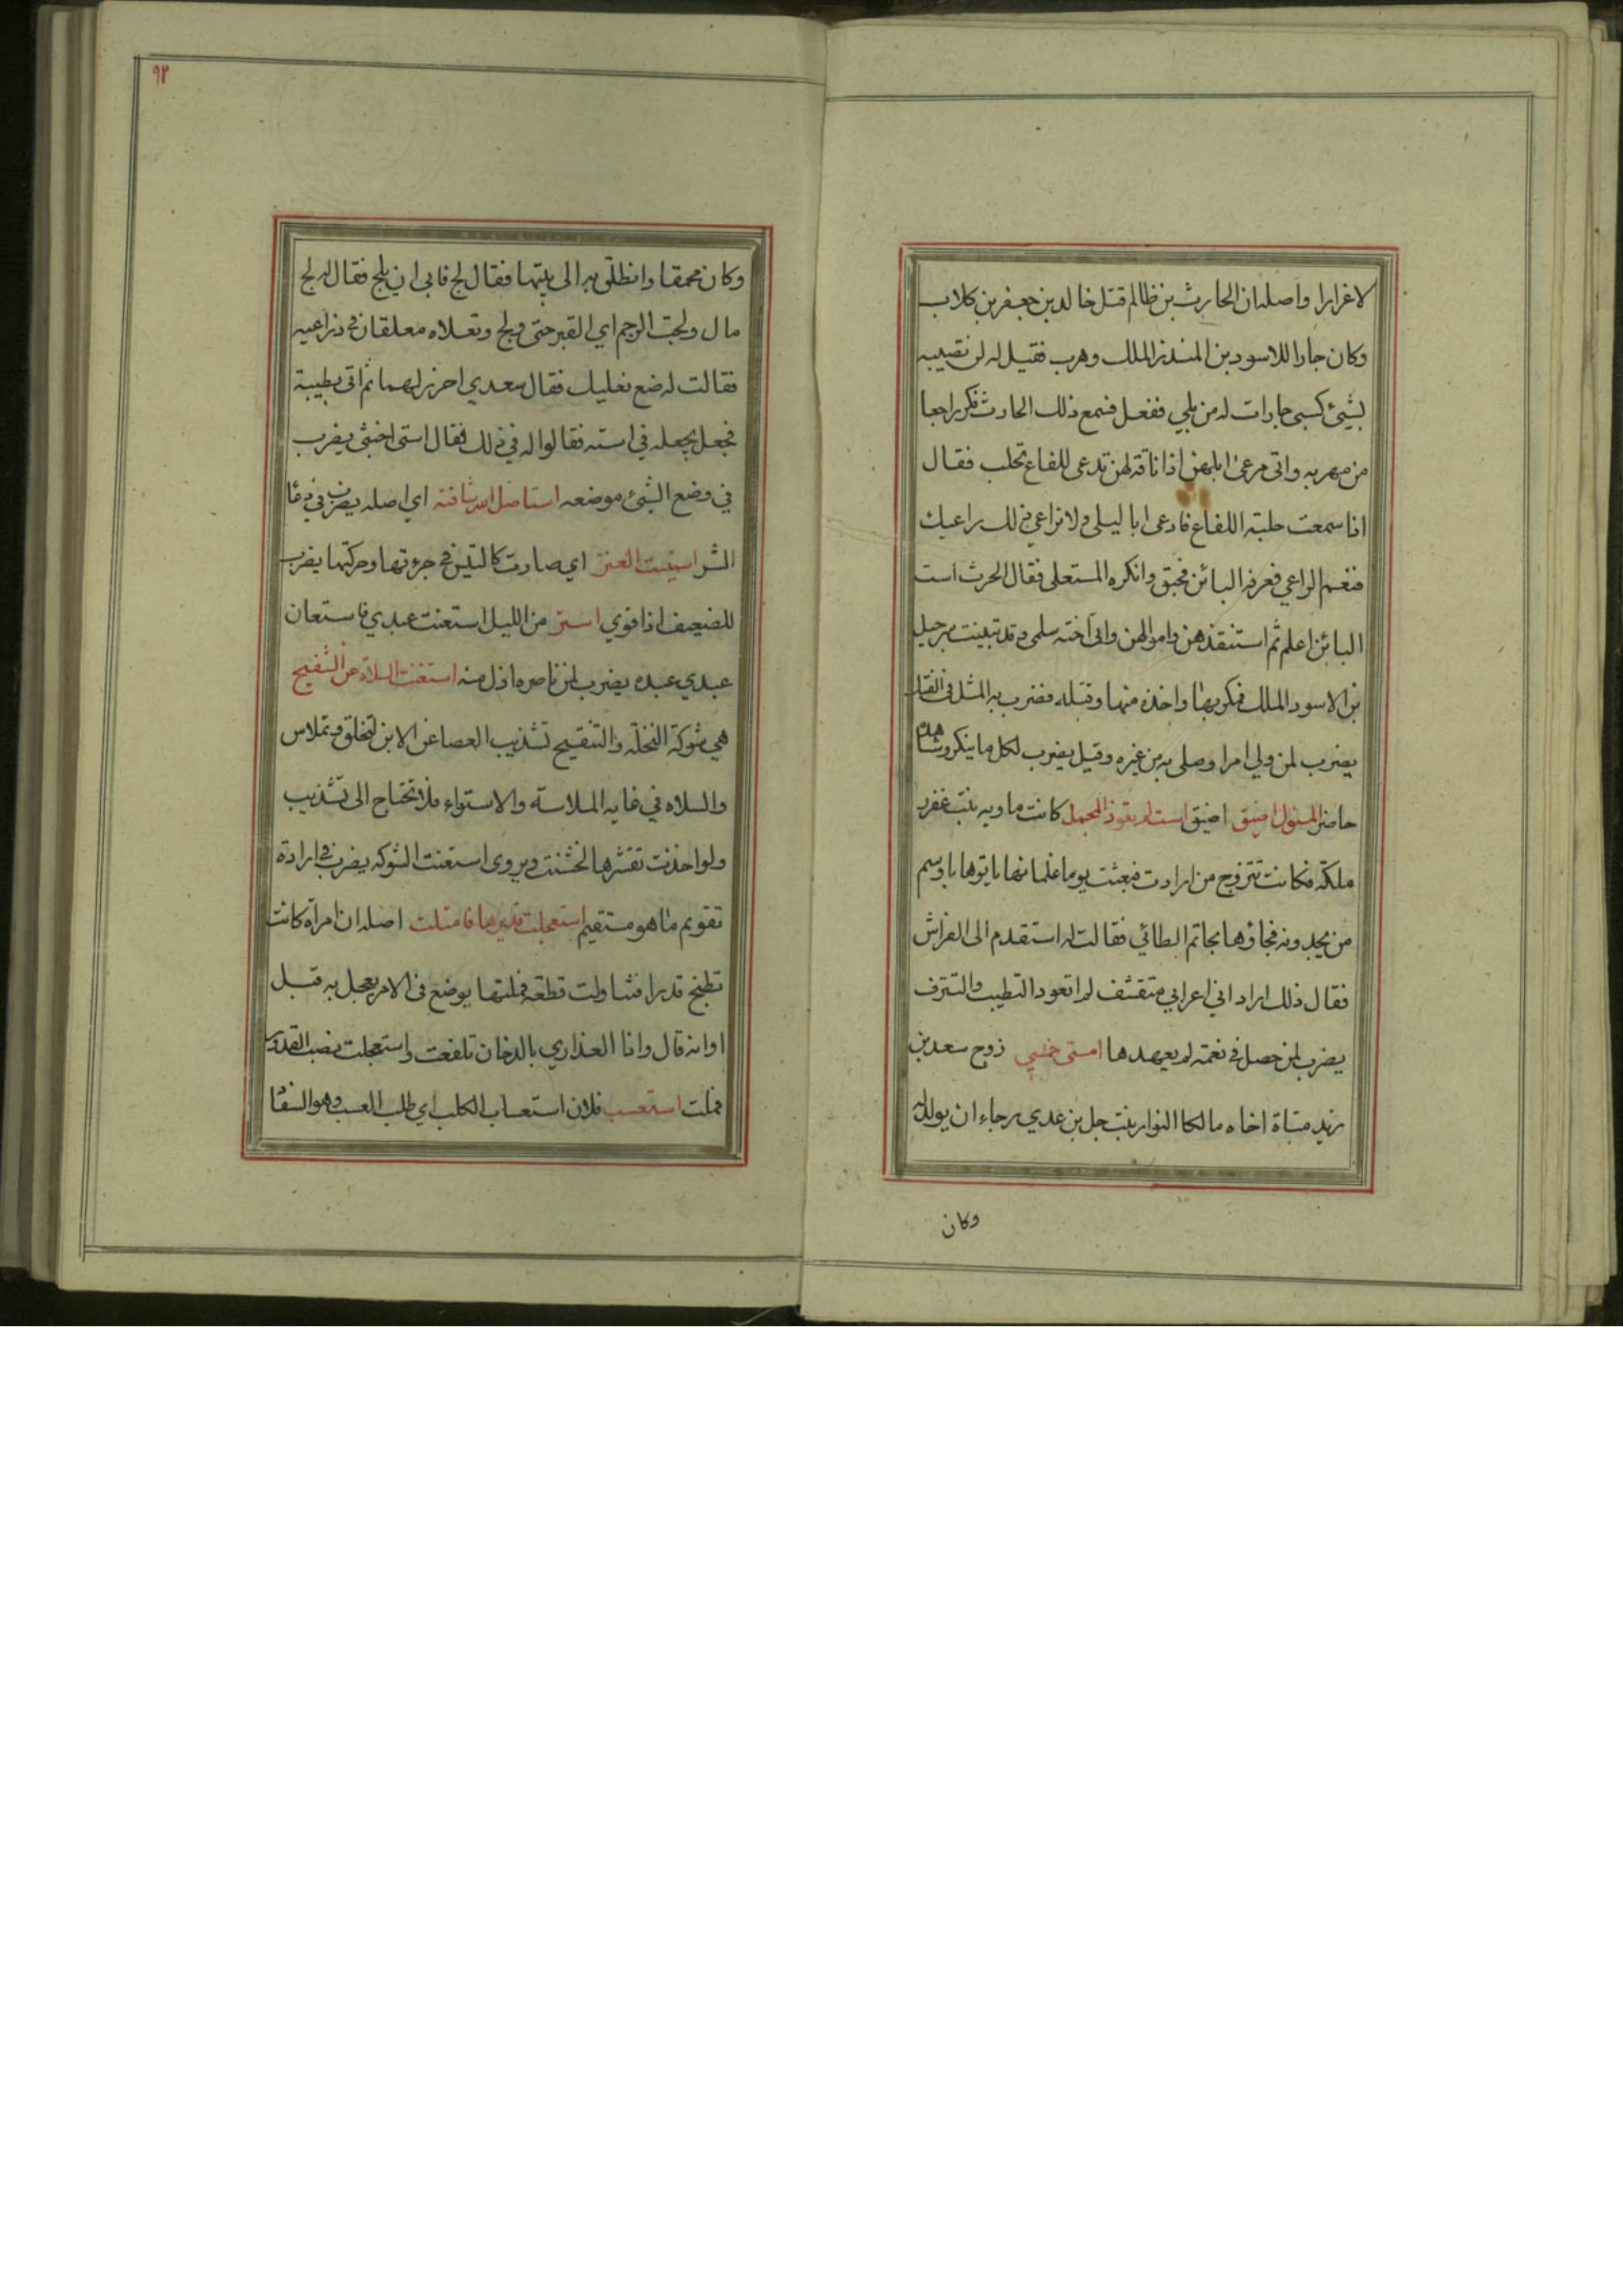 لاغرارا واصله ان الحارث بن ظالم قتل خالد بن جعفر بن كلاب
وكان جارا للاسود بن المنذر الملك وهرب فقيل له لن تصيبه
بشيئ كسبى جارات له من بلي ففعل فسمع ذلك الحارث فكر راجعا
من مهربه واتى مرعى ابلهن اذا ناقة لهن تدعى للفاع تحلب فقال
اذا سمعت حلبة اللفاع فادعى ابا ليلى ولا تراعي ذلك راعيك
فنعم الراعي فعرفه البائن فحبق وانكره المستعلى فقال الحرث است
البائن اعلم ثم استنقذهن واموالهن واتى اخته سلمى وقد تبنت شرحبيل
بن الاسود الملك فكر بها واخذه منها وقتله فضرب به المثل فى الفتك
يضرب لمن ولي امرا وصلى به من غيره وقيل يضرب لكل ما ينكر وشاهده
حاضر المسؤل اضيق اضيق است لم تعوذ المجمل كانت ماويه بنت عفزر
ملكة فكانت تتزوج من ارادت فبعثت يوما غلمانها ياتوها باوسم
من يجدونه فجاؤها بحاتم الطائي فقالت له استقدم الى الفراش
فقال ذلك اراد اني اعرابي متقشف لم اتعود التطيب والتترف
يضرب لمن حصل في نعمة لم يعهدها استى خبثي زوج سعد بن
زيد مناة اخاه مالكا النوار بنت جل بن عدي رجاء ان يولد له
وكان
٩٢
وكان محمقا وانطلق به الى بيتها فقال لج فابى ان يلج فقال له لج
مال ولجت الرجم اي القبر حتى ولج وتعلاه معلقان في ذراعيه
فقالت له ضع نعليك فقال سعدي احرز لهما ثم اتى بطيبة
فجعل يجعله في استه فقالوا له في ذلك فقال استى اخبثى يضرب
في وضع الشيئ موضعه استاصل الله شافته اي اصله يضرب في دعا
الشر استيست العنز اي صارت كالتيس في جرءتها وحركتها يضرب
للضعيف اذا قوي استر من الليل استعنت عبدي فاستعان
عبدي عبده يضرب لمن ناصره اذل منه استغنت السلاه عن التنقيح
هي شوكة النخلة والتنقيح تشذيب العصا عن الابن لتخلق وتملاس
والسلاه في غايه الملاسة والاستواء فلا تحتاج الى تشذيب
ولو اخذت تقشرها لخشنت ويروى استغنت الشوكه يضرب في ارادة
تقويم ما هو مستقيم استعجلت قديرها فامتلت اصله ان امراة كانت
تطبخ قدرا فتناولت قطعة فملتها يوضع فى الامر يعجل به قبل
اوانه قال واذا العذاري بالدخان تلفعت واستعجلت نصب القدور
فملت استعسب فلان استعساب الكلب اي طلب العسب وهو السفا